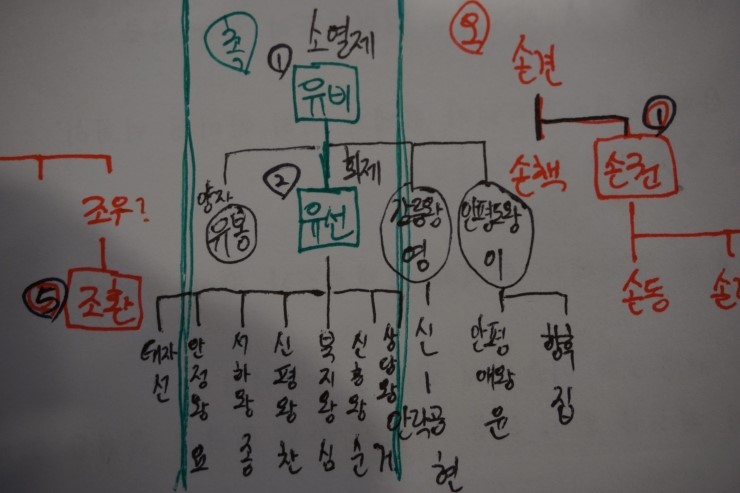 촉
①
소열제
유비
②
회제
유선
양자
유봉
감릉왕
영
안평도왕
이
태자
선
안정왕
요
서하왕
종
신평왕
찬
북지왕
심
신흥왕
순
상당왕
거
신
안락공
현
안평
애왕
윤
향후
집
오
손견
손책
①
손권
손등
조우?
⑤
조환